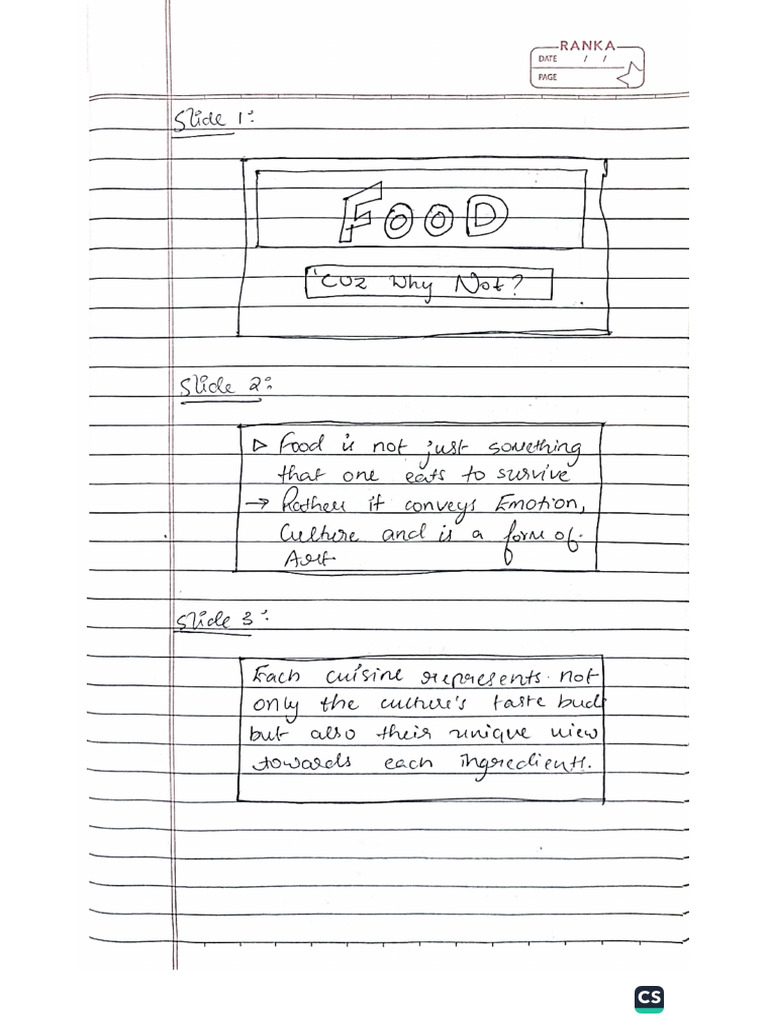 RANKA
DATE / /
PAGE
Slide 1:
FOOD
'Cuz Why Not?
Slide 2:
▷ Food is not just something
that one eats to survive
→ Rather it conveys Emotion,
Culture and is a form of.
Art
Slide 3:
Each cuisine represents not
only the culture's taste bud
but also their unique view
towards each ingredients.
CS